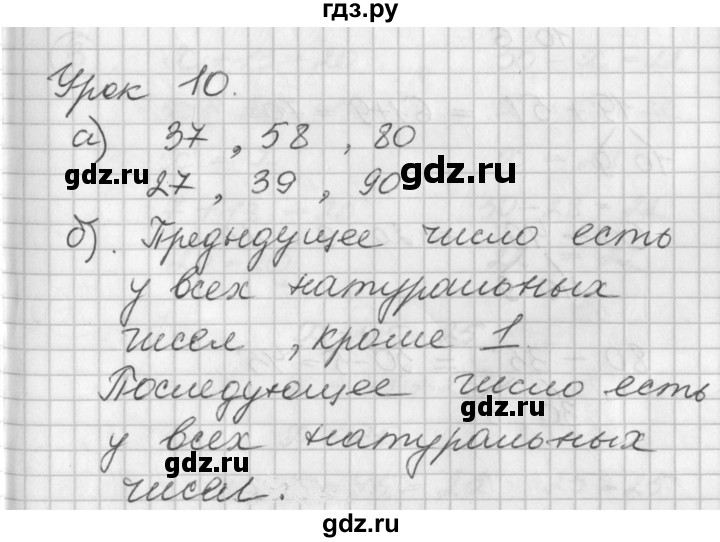 гдз.ру
Урок 10.
а) 37, 58, 80
gdz.ru
27, 39, 90
gdz.ru
б). Предыдущее число есть
у всех натуральных
чисел, кроме 1.
Последующее число есть
gdz.ru
у всех натуральных
gdz.ru
чисел.
gdz.ru